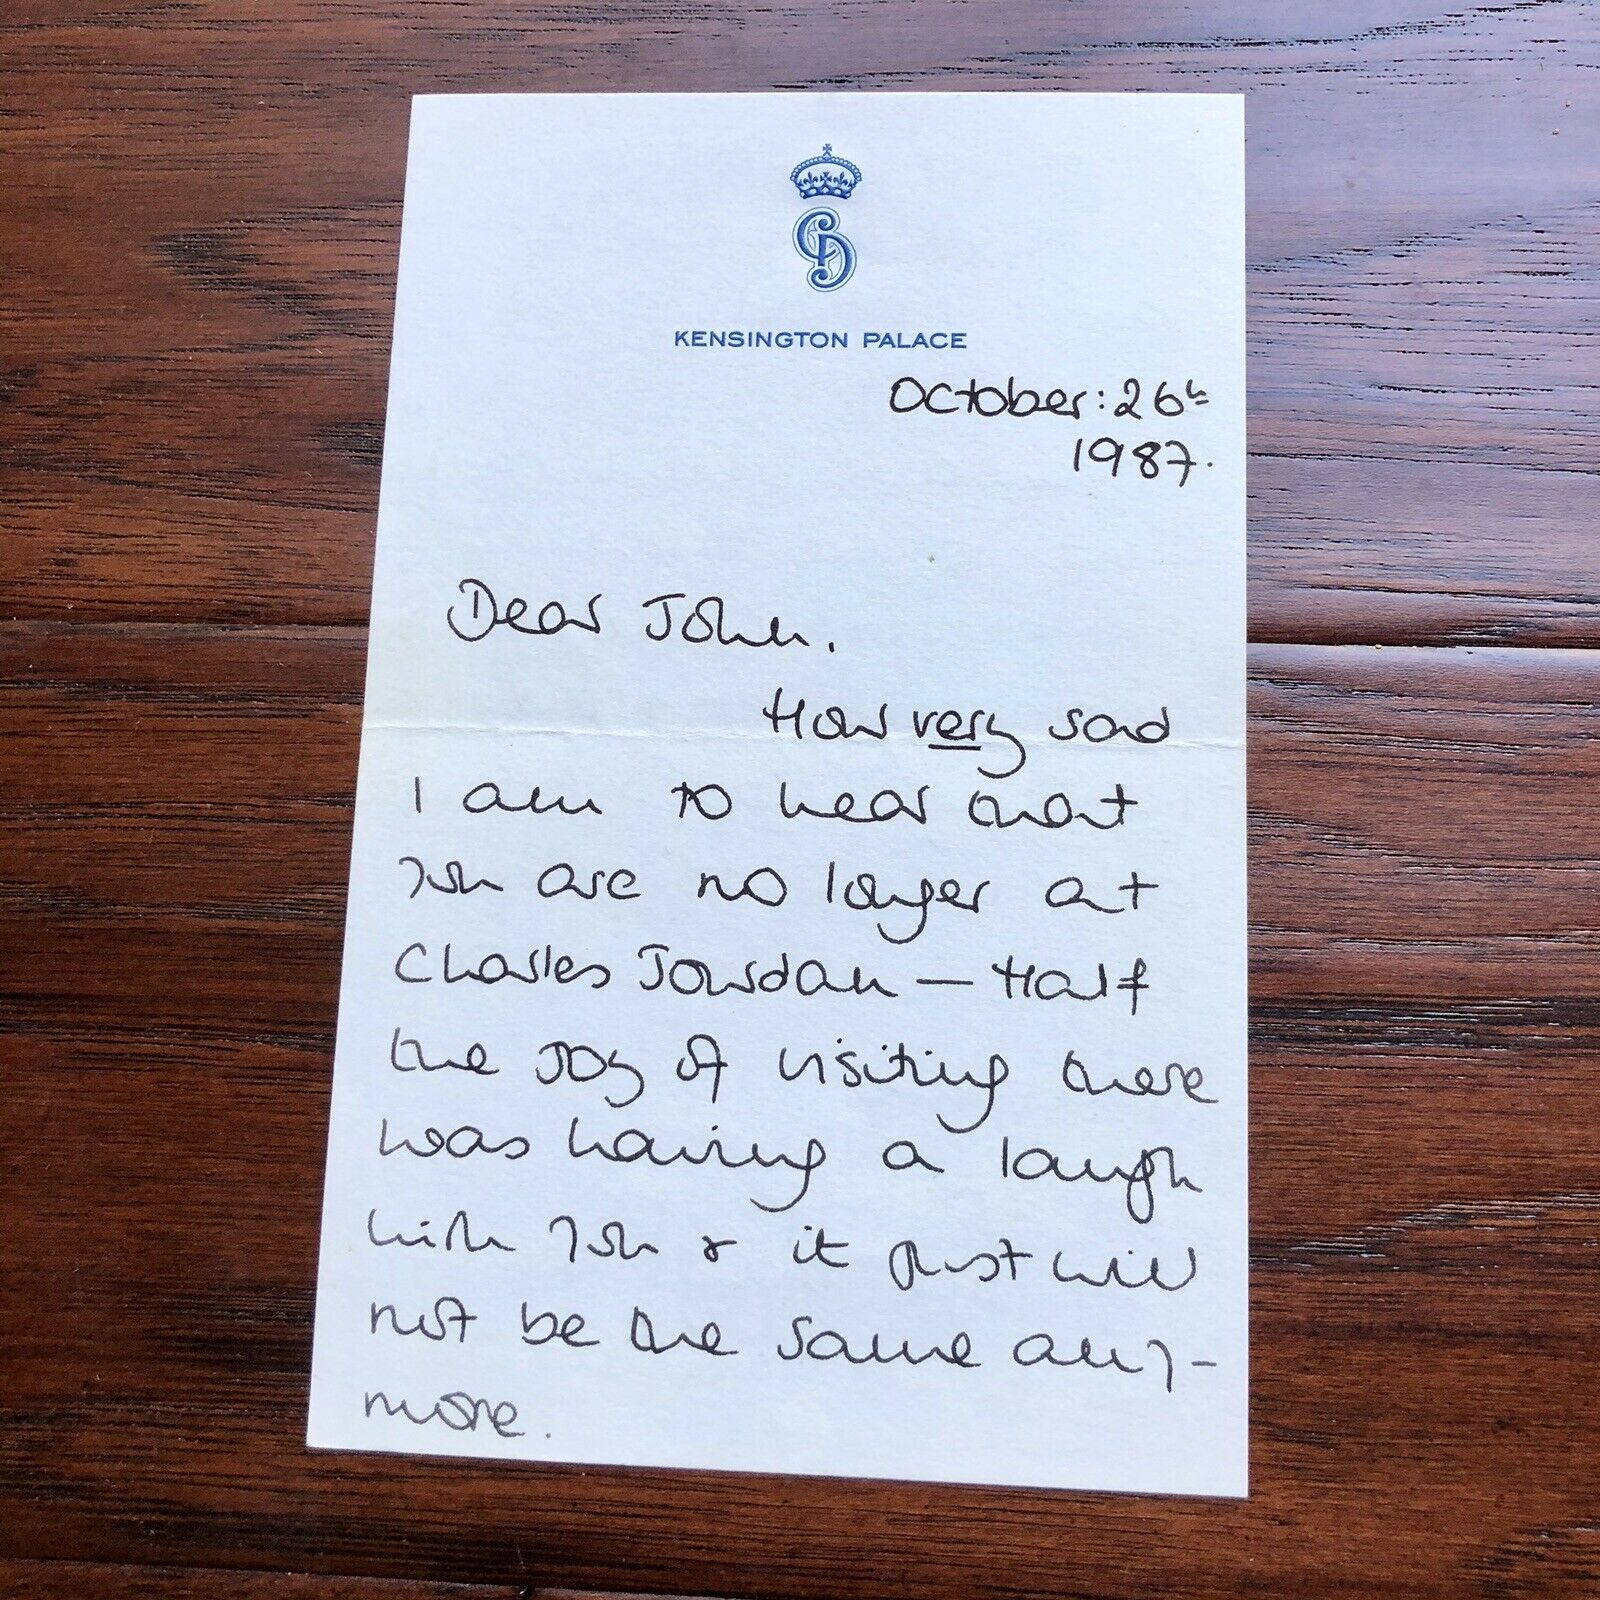 CD
KENSINGTON PALACE
October: 26th
1987.
Dear John.
How very sad
I am to hear that
you are no longer at
Charles Jourdan — Half
the joy of visiting there
was having a laugh
with you & it just will
not be the same any-
more.